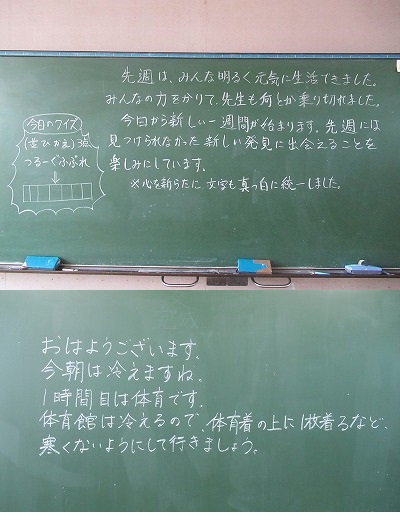 先週は、みんな明るく元気に生活できました。
みんなの力をかりて、先生も何とか乗り切れました。
今日から新しい一週間が始まります。先週には
見つけられなかった新しい発見に出会えることを
楽しみにしています。
※心を新らたに文字も真っ白に統一しました。
今日のクイズ
(並びかえ)
つるーぐふぶれ
↓
おはようございます。
今朝は冷えますね。
1時間目は体育です。
体育館は冷えるので、体育着の上に1枚着るなど、
寒くないようにして行きましょう。